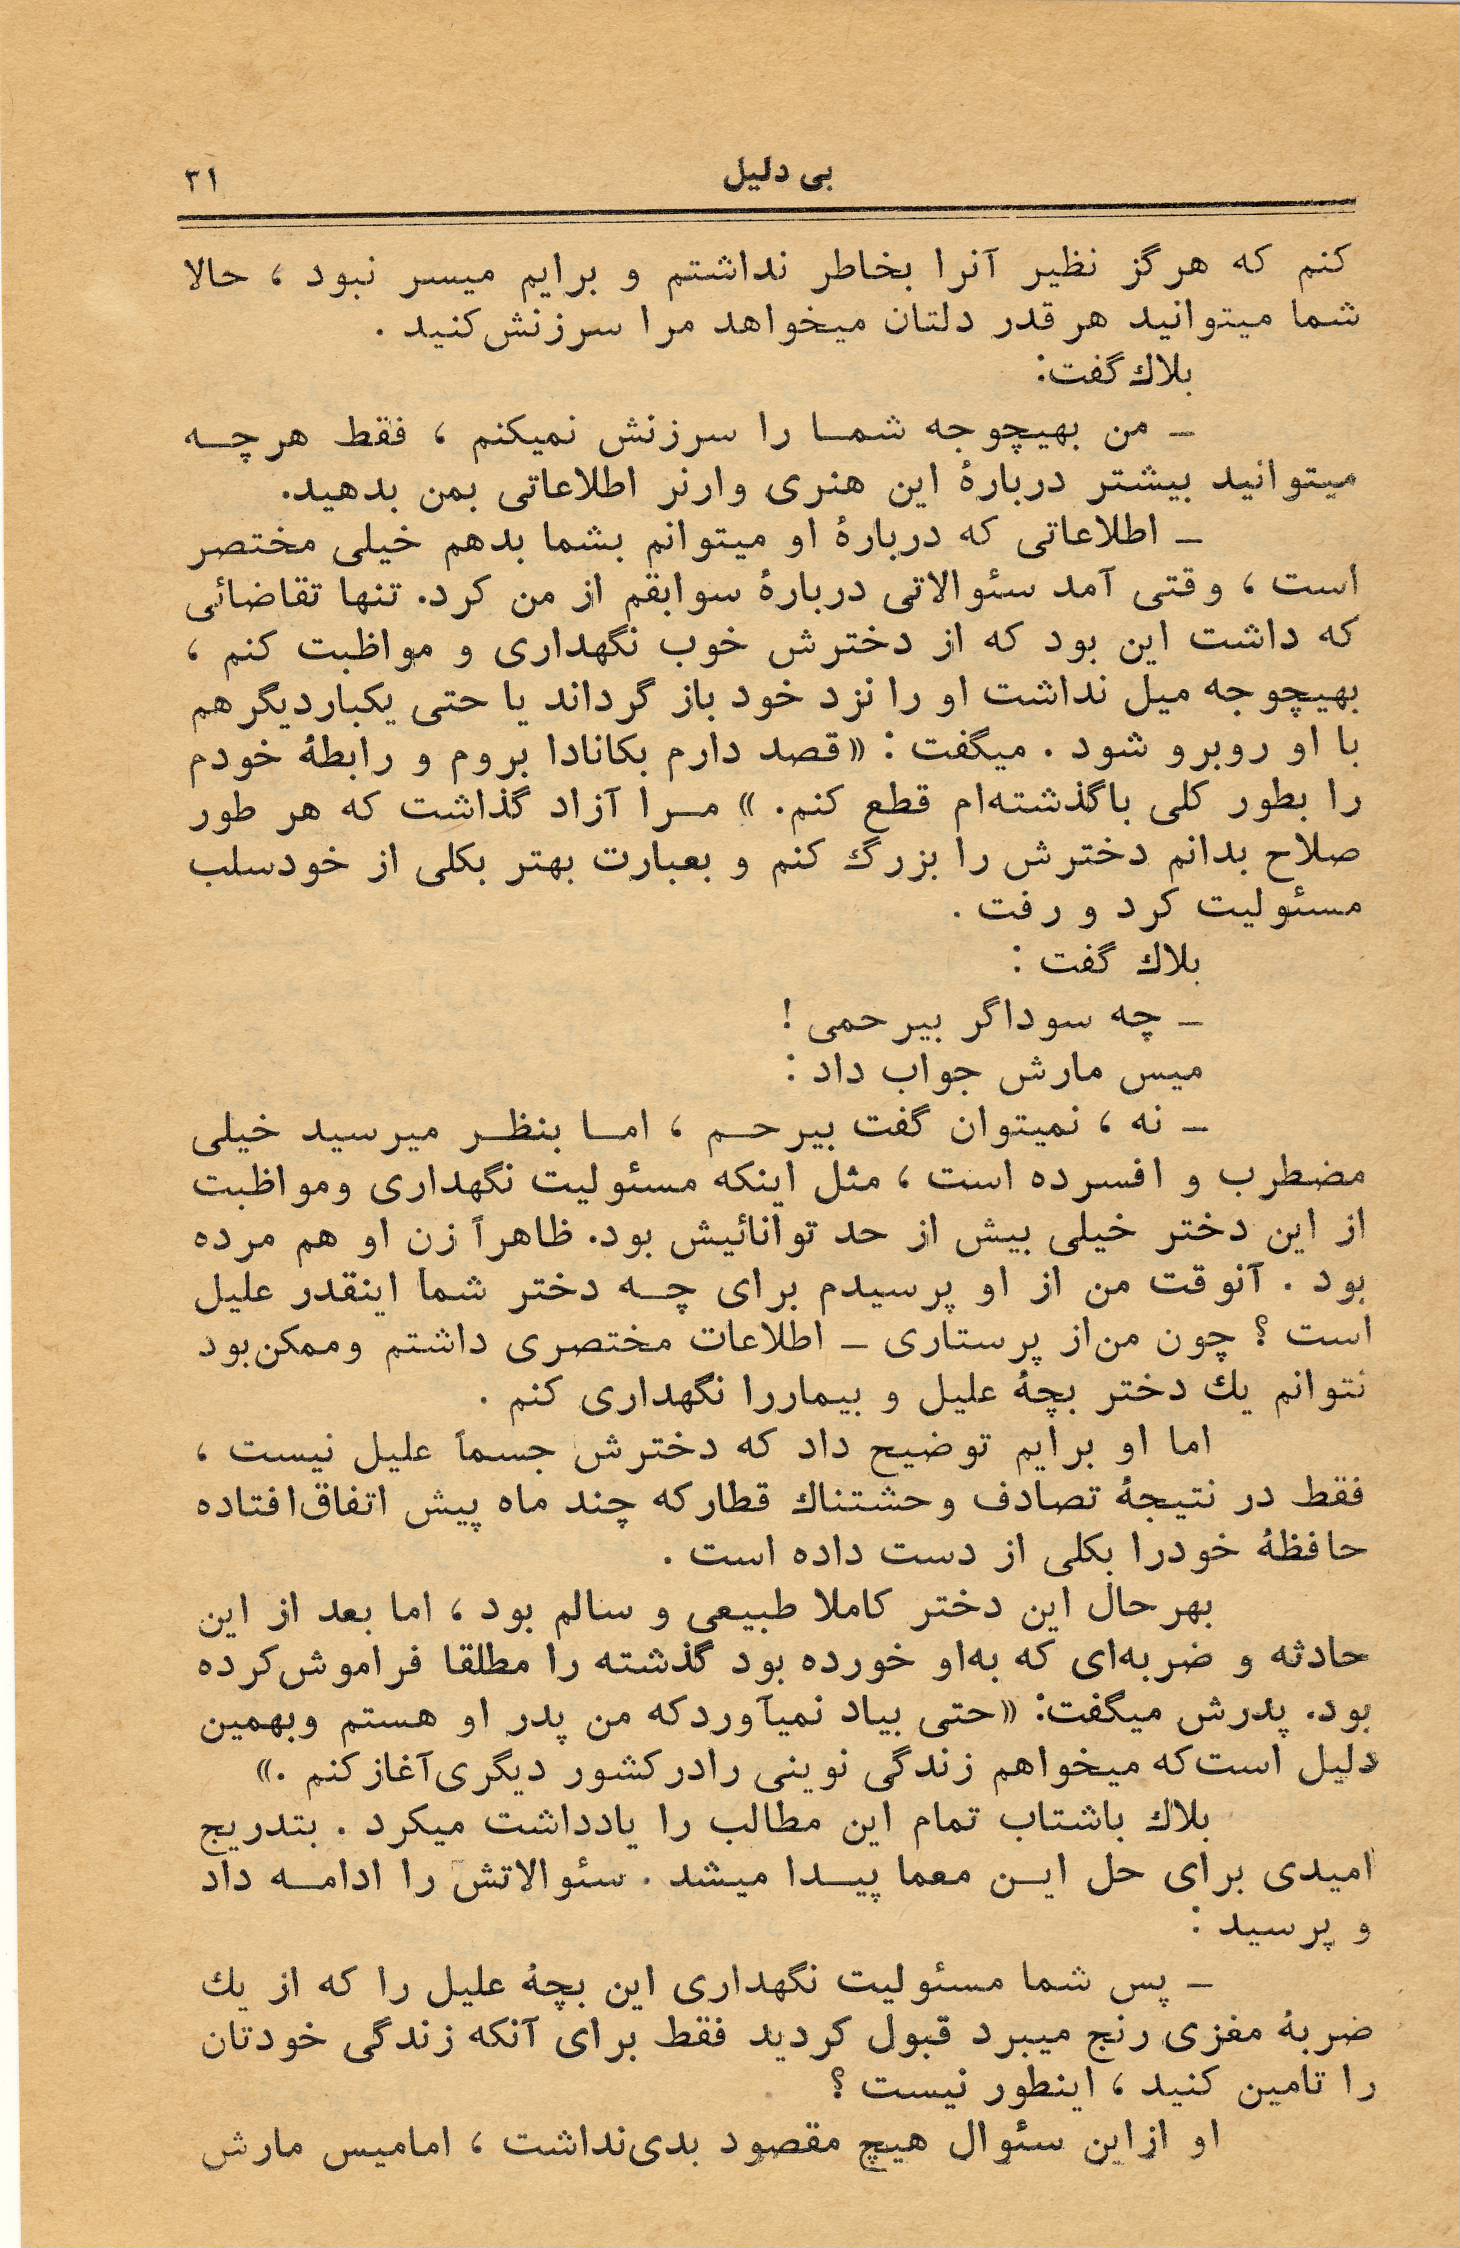 بی دلیل
۳۱
کنم که هرگز نظیر آنرا بخاطر نداشتم و برایم میسر نبود ، حالا
شما میتوانید هرقدر دلتان میخواهد مرا سرزنش‌کنید .
بلاك گفت:
ـ من بهیچوجه شمـا را سرزنش نمیکنم ، فقط هرچـه
میتوانید بیشتر دربارهٔ این هنری وارنر اطلاعاتی بمن بدهید.
ـ اطلاعاتی که دربارهٔ او میتوانم بشما بدهم خیلی مختصر
است ، وقتی آمد سئوالاتی دربارهٔ سوابقم از من کرد. تنها تقاضائی
که داشت این بود که از دخترش خوب نگهداری و مواظبت کنم ،
بهیچوجه میل نداشت او را نزد خود باز گرداند یا حتی یکباردیگرهم
با او روبرو شود . میگفت : «قصد دارم بکانادا بروم و رابطهٔ خودم
را بطور کلی باگذشته‌ام قطع کنم. » مـرا آزاد گذاشت که هر طور
صلاح بدانم دخترش را بزرگ کنم و بعبارت بهتر بکلی از خودسلب
مسئولیت کرد و رفت .
بلاك گفت :
ـ چه سوداگر بیرحمی !
میس مارش جواب داد :
ـ نه ، نمیتوان گفت بیرحـم ، امـا بنظـر میرسید خیلی
مضطرب و افسرده است ، مثل اینکه مسئولیت نگهداری ومواظبت
از این دختر خیلی بیش از حد توانائیش بود. ظاهراً زن او هم مرده
بود . آنوقت من از او پرسیدم برای چـه دختر شما اینقدر علیل
است ؟ چون من‌از پرستاری ـ اطلاعات مختصری داشتم وممکن‌بود
نتوانم یك دختر بچهٔ علیل و بیماررا نگهداری کنم .
اما او برایم توضیح داد که دخترش جسماً علیل نیست ،
فقط در نتیجهٔ تصادف وحشتناك قطارکه چند ماه پیش اتفاق‌افتاده
حافظهٔ خودرا بکلی از دست داده است .
بهرحال این دختر کاملا طبیعی و سالم بود ، اما بعد از این
حادثه و ضربه‌ای که به‌او خورده بود گذشته را مطلقا فراموش‌کرده
بود. پدرش میگفت: «حتی بیاد نمیآوردکه من پدر او هستم وبهمین
دلیل است‌که میخواهم زندگی نوینی رادرکشور دیگری‌آغازکنم .»
بلاك باشتاب تمام این مطالب را یادداشت میکرد . بتدریج
امیدی برای حل ایـن معما پیـدا میشد . سئوالاتش را ادامـه داد
و پرسید :
ـ پس شما مسئولیت نگهداری این بچهٔ علیل را که از یك
ضربهٔ مغزی رنج میبرد قبول کردید فقط برای آنکه زندگی خودتان
را تامین کنید ، اینطور نیست ؟
او ازاین سئوال هیچ مقصود بدی‌نداشت ، امامیس مارش